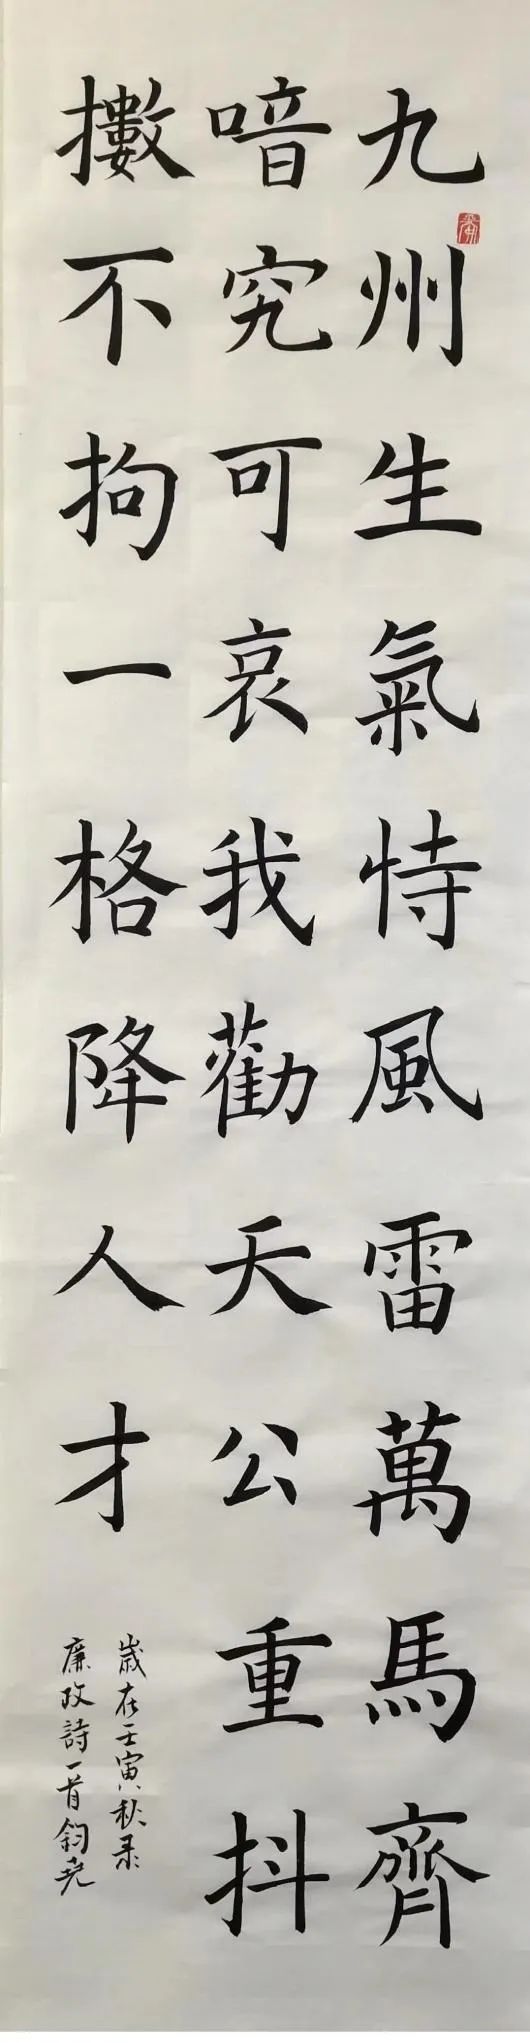 九州生氣恃風雷萬馬齊
喑究可哀我勸天公重抖
擻不拘一格降人才
歲在壬寅秋录
廉政詩一首鈞堯